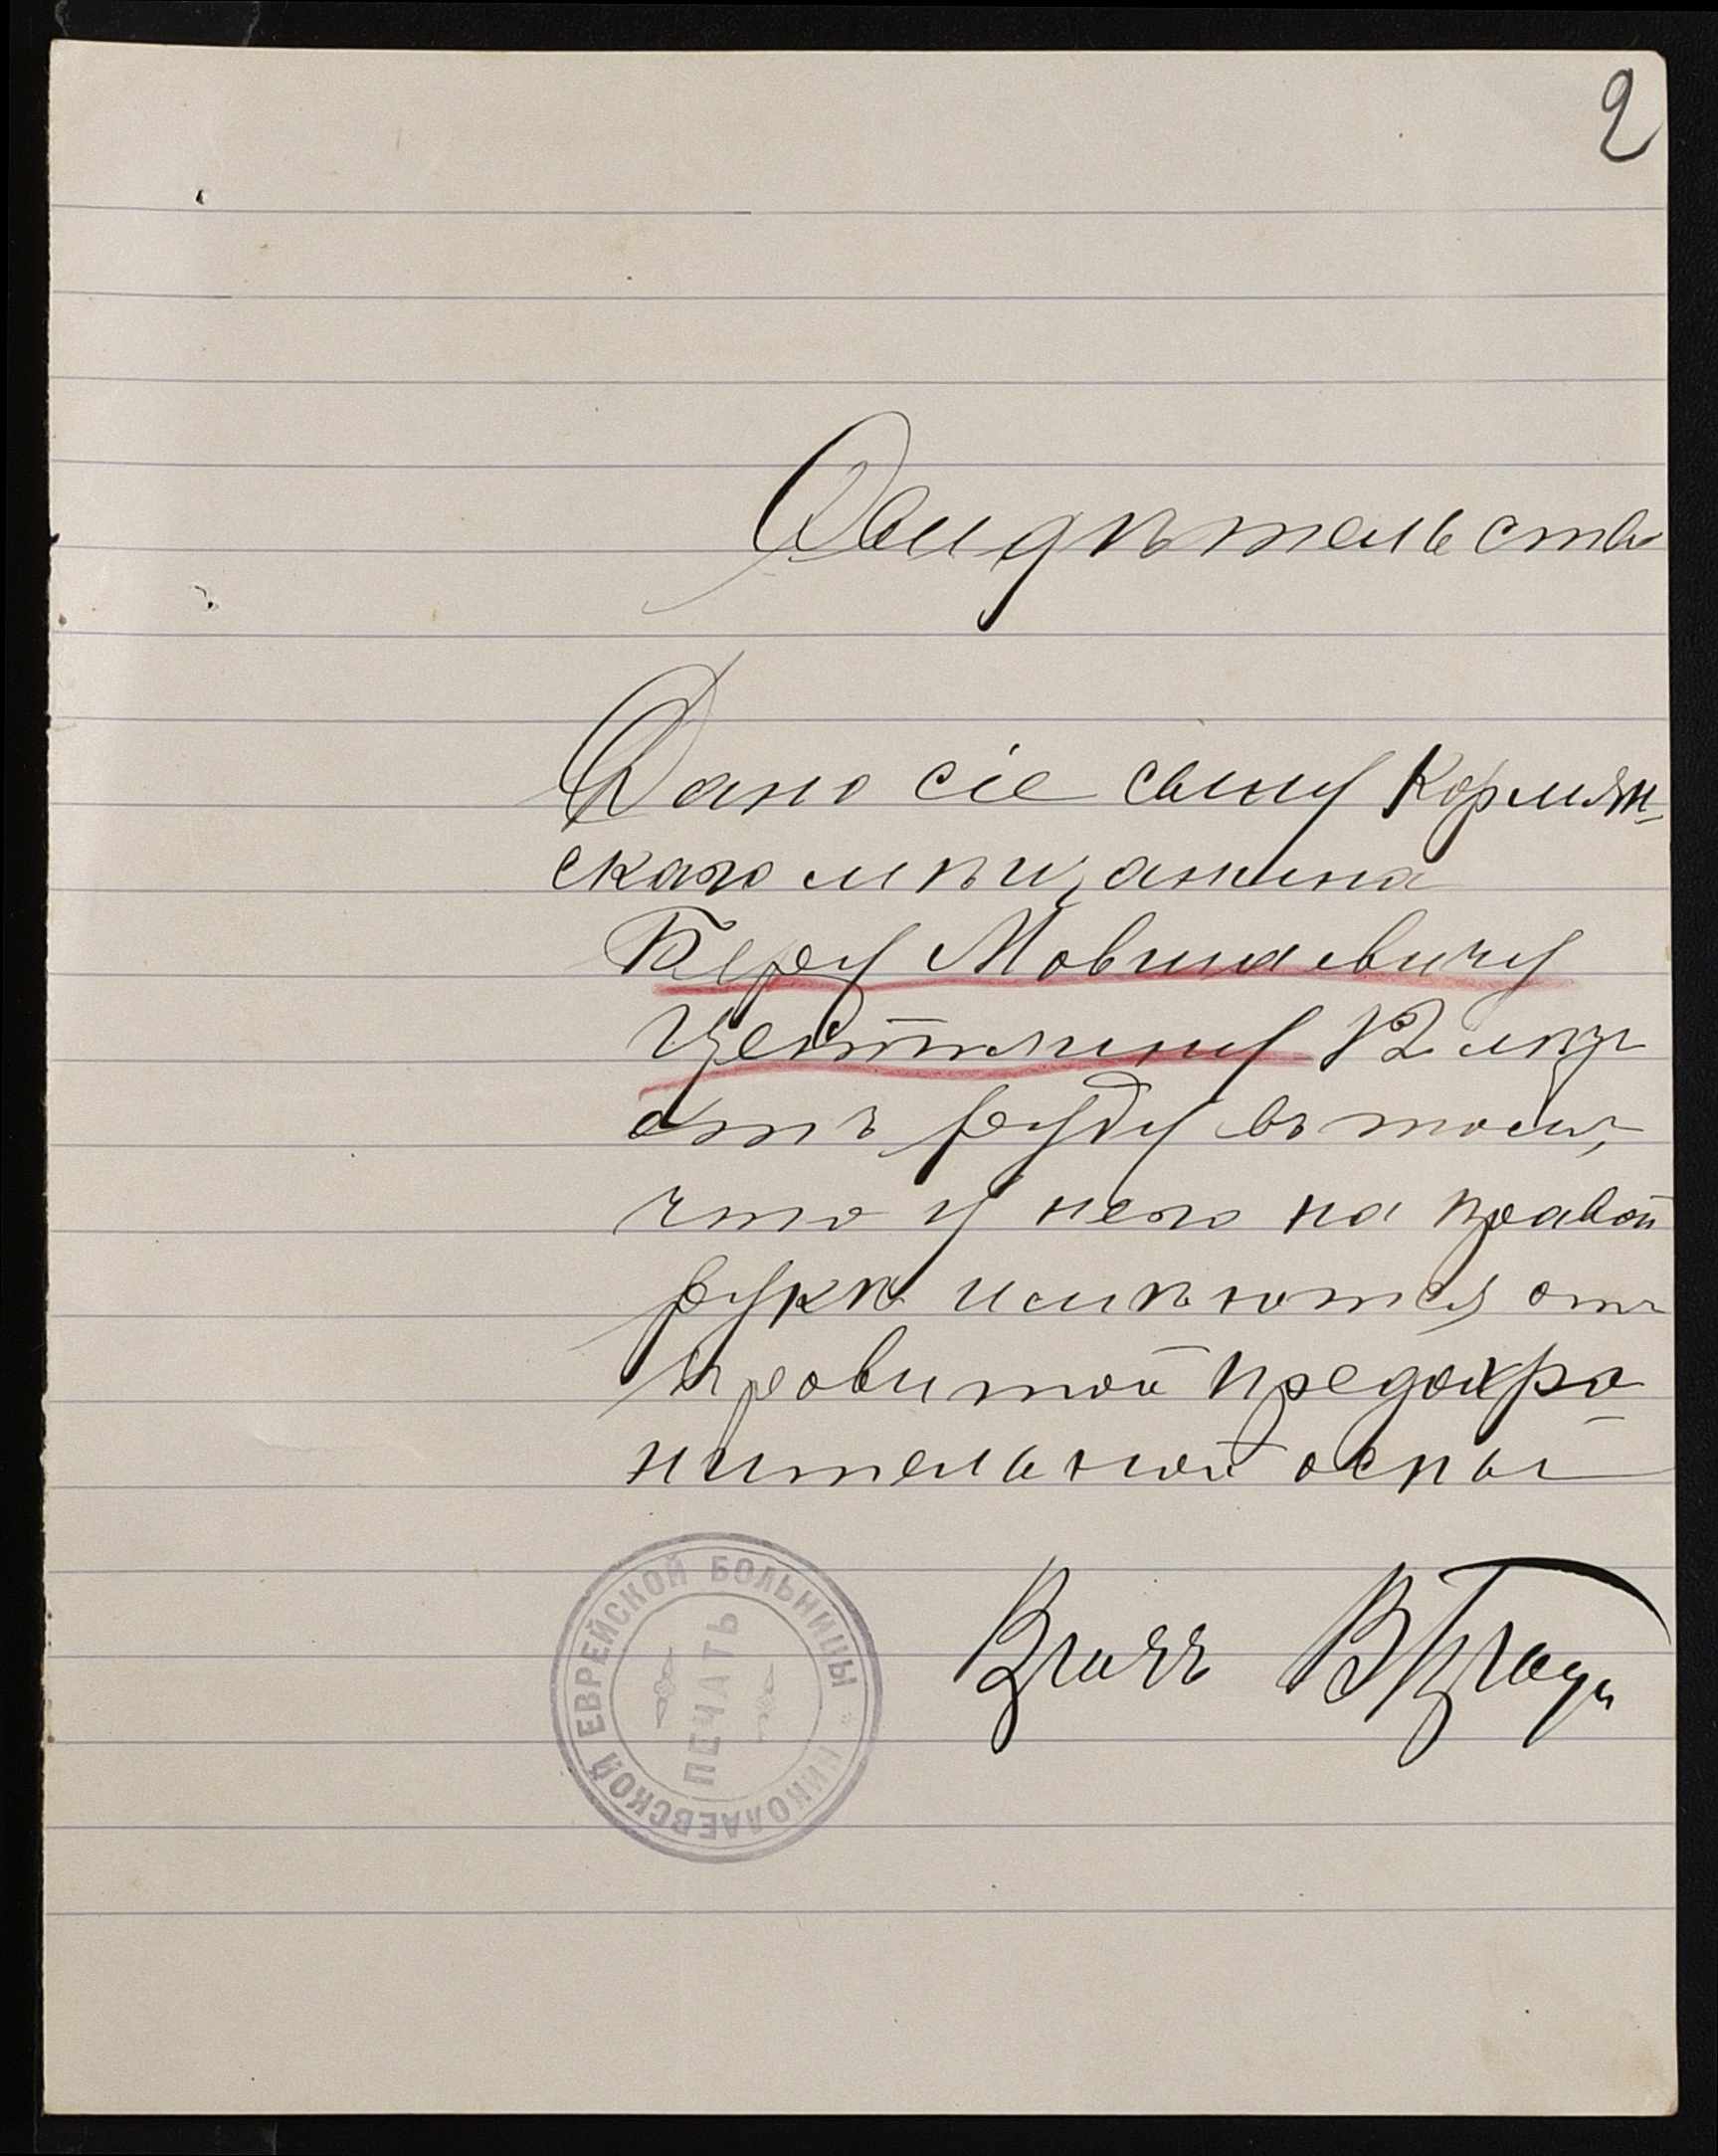 2
Свидѣтельство
Дано сіе сыну Кормян-
скаго мѣщанина
Беру Мовшевичу
Цейтлину 12 лѣтъ
отъ роду въ томъ,
что у него на правой
рукѣ имѣются отъ
привитой предохра
нительной оспы
Врачъ В
НИКОЛАЕВСКОЙ ЕВРЕЙСКОЙ БОЛЬНИЦЫ *
ПЕЧАТЬ